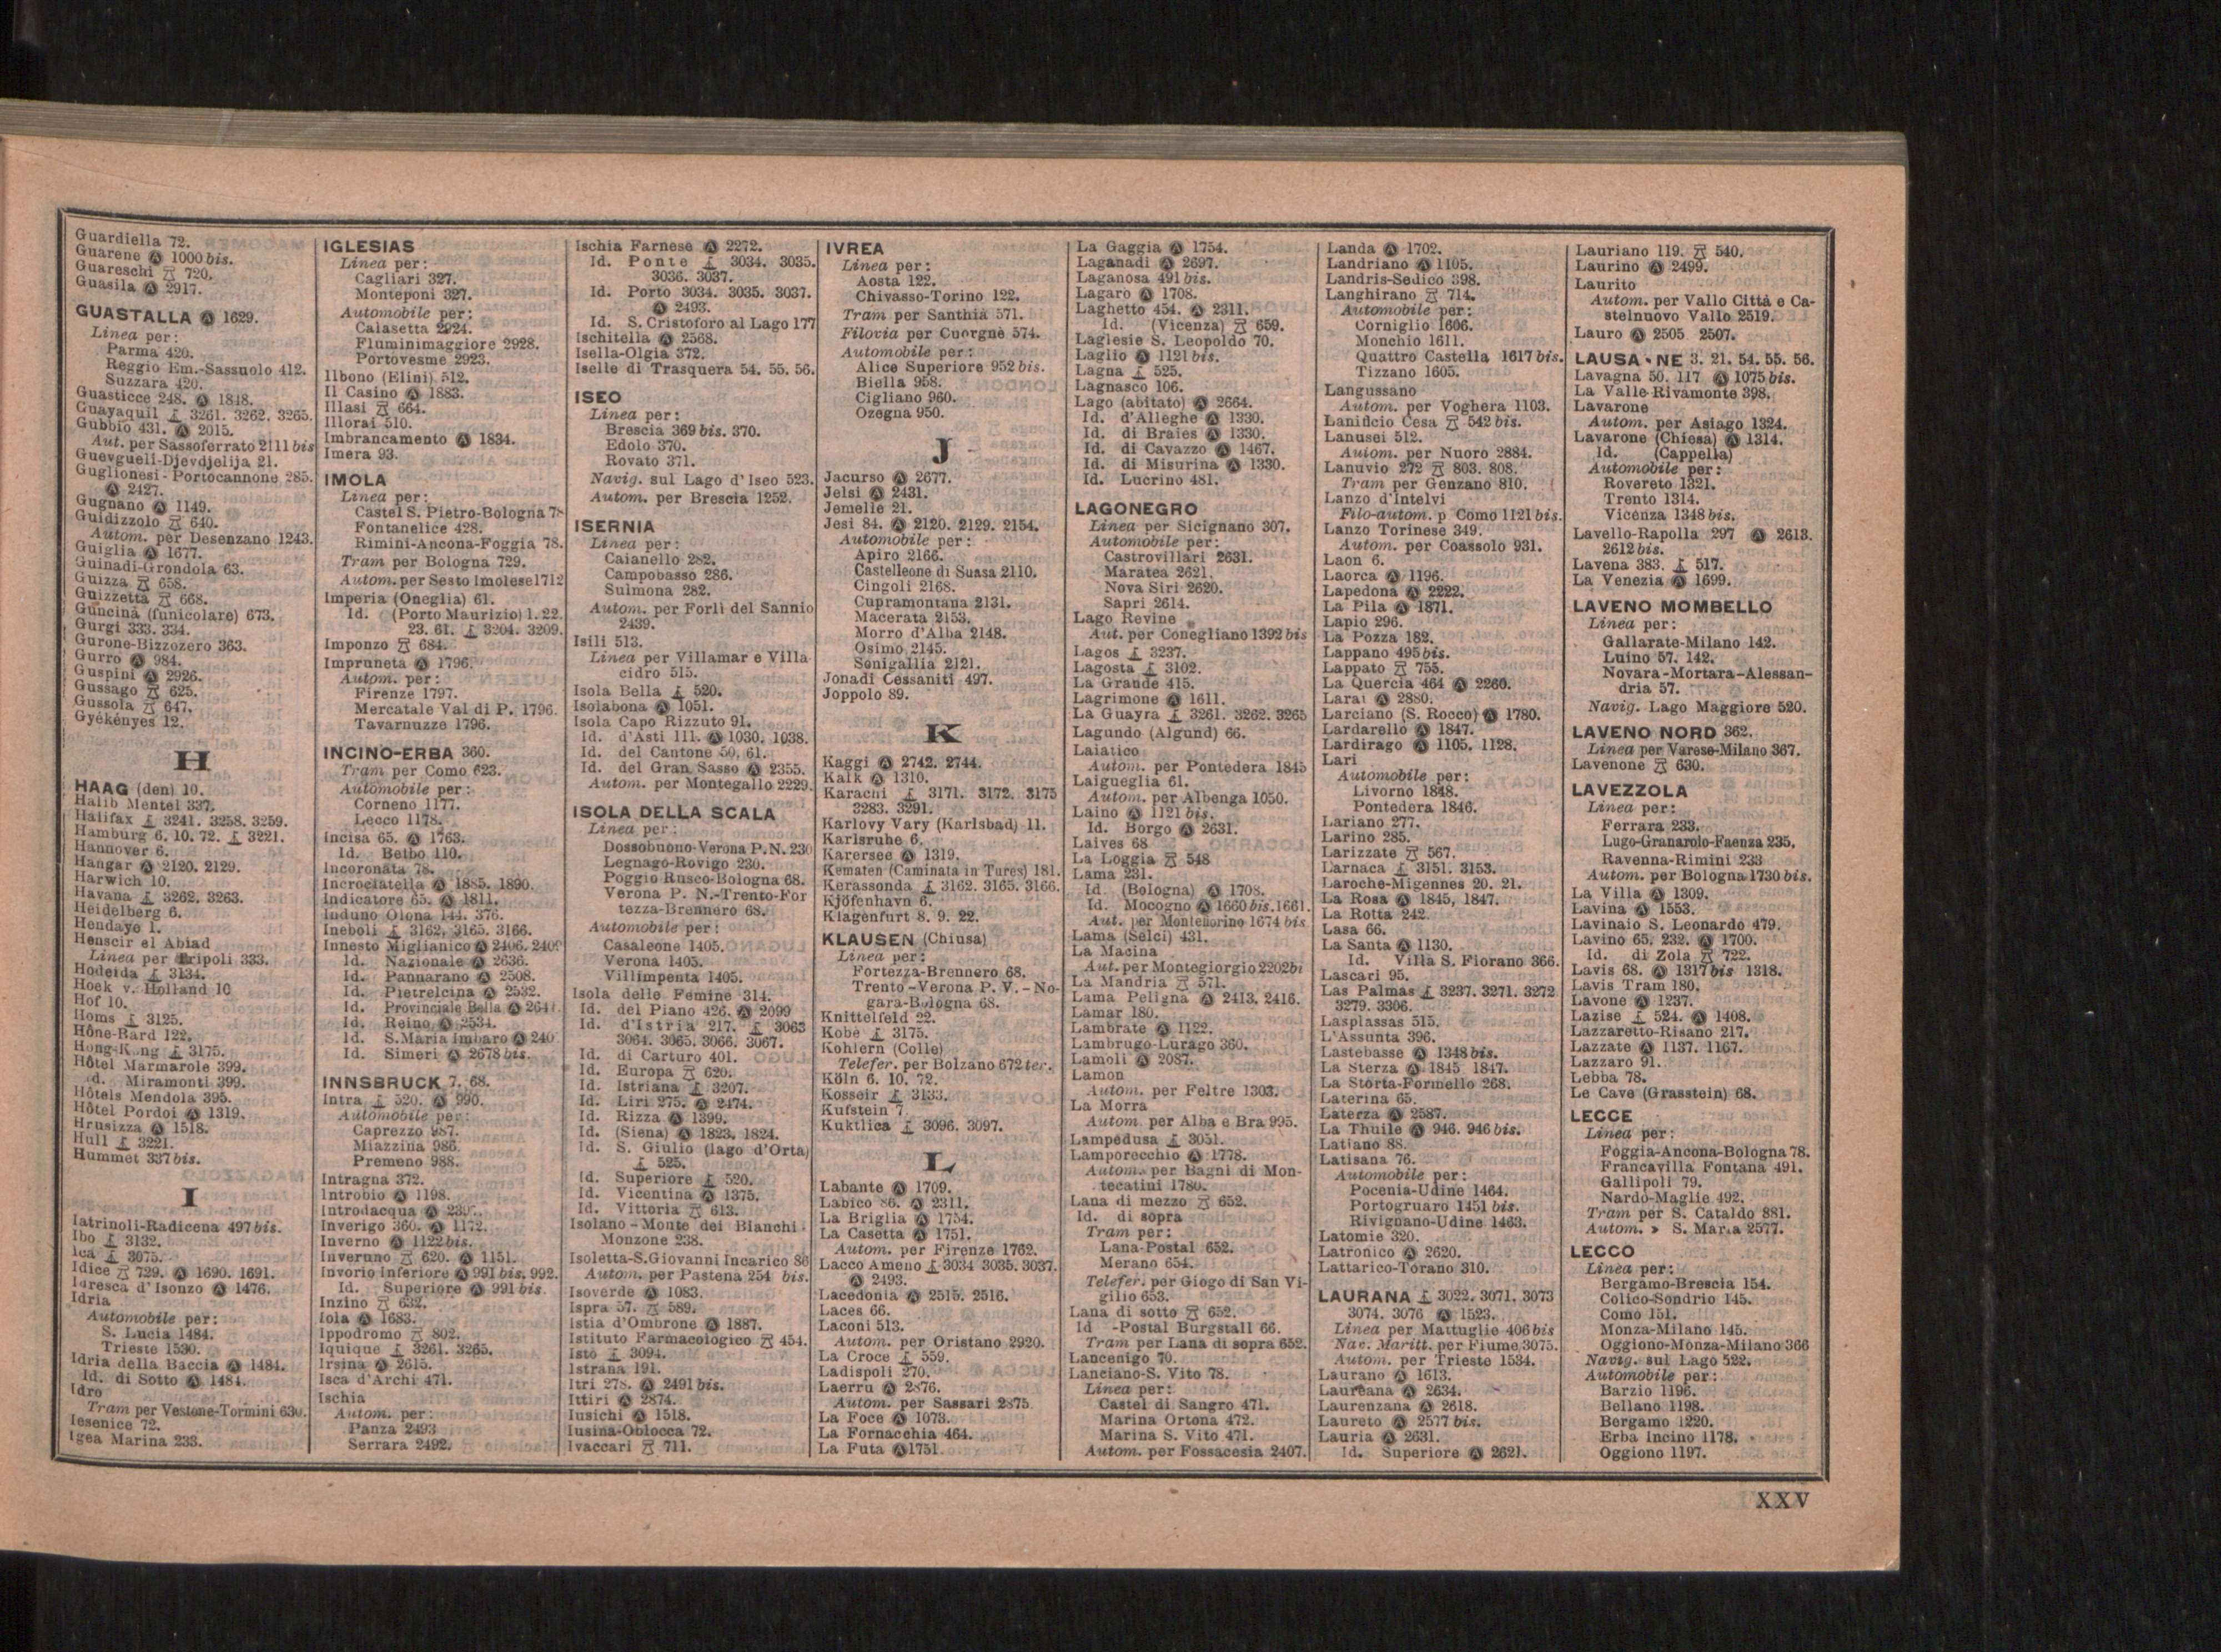 Guardiella 72.
Guarene Ⓐ 1000 bis.
Guareschi 720.
Guasila Ⓐ 2917.
GUASTALLA Ⓐ 1629.
Linea per:
Parma 420.
Reggio Em.-Sassuolo 412.
Suzzara 420.
Guasticce 248. Ⓐ 1848.
Guayaquil 3261. 3262. 3265.
Gubbio 431. Ⓐ 2015.
Aut. per Sassoferrato 2111 bis
Guevgueli-Djevdjelija 21.
Guglionesi-Portocannone 285.
Ⓐ 2427.
Gugnano Ⓐ 1149.
Guidizzolo 640.
Autom. per Desenzano 1243.
Guiglia Ⓐ 1677.
Guinadi-Grondola 63.
Guizza 658.
Guizzetta 668.
Guncina (funicolare) 673.
Gurgi 333. 334.
Gurone-Bizzozero 363.
Gurro Ⓐ 984.
Guspini Ⓐ 2926.
Gussago 625.
Gussola 647.
Gyékényes 12.
H
HAAG (den) 10.
Halib Mentel 337.
Halifax 3241. 3258. 3259.
Hamburg 6. 10. 72. 3221.
Hannover 6.
Hangar Ⓐ 2120. 2129.
Harwich 10.
Havana 3262. 3263.
Heidelberg 6.
Hendaye 1.
Henscir el Abiad
Linea per Tripoli 333.
Hodeida 3134.
Hoek v. Holland 10
Hof 10.
Homs 3125.
Hône-Bard 122.
Hong-Kong 3175.
Hôtel Marmarole 399.
Id. Miramonti 399.
Hôtels Mendola 395.
Hôtel Pordoi Ⓐ 1319.
Hrusizza Ⓐ 1518.
Hull 3221.
Hummet 337 bis.
I
Iatrinoli-Radicena 497 bis.
Ibo 3132.
Ica 3075.
Idice 729. Ⓐ 1690. 1691.
Idresca d'Isonzo Ⓐ 1476.
Idria
Automobile per:
S. Lucia 1484.
Trieste 1530.
Idria della Baccia Ⓐ 1484.
Id. di Sotto Ⓐ 1484.
Idro
Tram per Vestone-Tormini 630.
Iesenice 72.
Igea Marina 233.
IGLESIAS
Linea per:
Cagliari 327.
Monteponi 327.
Automobile per:
Calasetta 2924.
Fluminimaggiore 2928.
Portovesme 2923.
Ilbono (Elini) 512.
Il Casino Ⓐ 1883.
Illasi 664.
Illorai 510.
Imbrancamento Ⓐ 1834.
Imera 93.
IMOLA
Linea per:
Castel S. Pietro-Bologna 78
Fontanelice 428.
Rimini-Ancona-Foggia 78.
Tram per Bologna 729.
Autom. per Sesto Imolese 1712
Imperia (Oneglia) 61.
Id. (Porto Maurizio) 1. 22.
23. 61. 3204. 3209.
Imponzo 684.
Impruneta Ⓐ 1796.
Autom. per:
Firenze 1797.
Mercatale Val di P. 1796.
Tavarnuzze 1796.
INCINO-ERBA 360.
Tram per Como 623.
Automobile per:
Corneno 1177.
Lecco 1178.
Incisa 65. Ⓐ 1763.
Id. Belbo 110.
Incoronata 78.
Incrociatella Ⓐ 1885. 1890.
Indicatore 65. Ⓐ 1811.
Induno Olona 144. 376.
Ineboli 3162. 3165. 3166.
Innesto Miglianico Ⓐ 2406.
Id. Nazionale Ⓐ 2636.
Id. Pannarano Ⓐ 2508.
Id. Pietrelcina Ⓐ 2532.
Id. Provinciale Bella Ⓐ
Id. Reino Ⓐ 2534.
Id. S.Maria Imbaro Ⓐ
Id. Simeri Ⓐ 2678 bis.
INNSBRUCK 7. 68.
Intra 520. Ⓐ 990.
Automobile per:
Caprezzo 987.
Miazzina 986.
Premeno 988.
Intragna 372.
Introbio Ⓐ 1198.
Introdacqua Ⓐ
Inverigo 360. Ⓐ 1172.
Inverno Ⓐ 1122 bis.
Inveruno 620. Ⓐ 1151.
Invorio Inferiore Ⓐ 991 bis. 992.
Id. Superiore Ⓐ 991 bis.
Inzino 632.
Iola Ⓐ 1683.
Ippodromo 802.
Iquique 3261. 3265.
Irsina Ⓐ 2615.
Isca d'Archi 471.
Ischia
Autom. per:
Panza 2493
Serrara 2492.
Ischia Farnese Ⓐ 2272.
Id. Ponte 3034. 3035.
3036. 3037.
Id. Porto 3034. 3035. 3037.
Ⓐ 2493.
Id. S. Cristoforo al Lago 177
Ischitella Ⓐ 2568.
Isella-Olgia 372.
Iselle di Trasquera 54. 55. 56.
ISEO
Linea per:
Brescia 369 bis. 370.
Edolo 370.
Rovato 371.
Navig. sul Lago d'Iseo 523.
Autom. per Brescia 1252.
ISERNIA
Linea per:
Caianello 282.
Campobasso 286.
Sulmona 282.
Autom. per Forlì del Sannio
2439.
Isili 513.
Linea per Villamar e Villa-
cidro 515.
Isola Bella 520.
Isolabona Ⓐ 1051.
Isola Capo Rizzuto 91.
Id. d'Asti 111. Ⓐ 1030. 1038.
Id. del Cantone 50. 61.
Id. del Gran Sasso Ⓐ 2355.
Autom. per Montegallo 2229.
ISOLA DELLA SCALA
Linea per:
Dossobuono-Verona P.N. 230
Legnago-Rovigo 230.
Poggio Rusco-Bologna 68.
Verona P. N.-Trento-For
tezza-Brennero 68.
Automobile per:
Casaleone 1405.
Verona 1405.
Villimpenta 1405.
Isola delle Femine 314.
Id. del Piano 426. Ⓐ 2099
Id. d'Istria 217. 3063
3064. 3065. 3066. 3067.
Id. di Carturo 401.
Id. Europa 620.
Id. Istriana 3207.
Id. Liri 275. Ⓐ 2474.
Id. Rizza Ⓐ 1399.
Id. (Siena) Ⓐ 1823. 1824.
Id. S. Giulio (lago d'Orta)
525.
Id. Superiore 520.
Id. Vicentina Ⓐ 1375.
Id. Vittoria 613.
Isolano-Monte dei Bianchi-
Monzone 238.
Isoletta-S.Giovanni Incarico 86
Autom. per Pastena 254 bis.
Isoverde Ⓐ 1083.
Ispra 57. 589.
Istia d'Ombrone Ⓐ 1887.
Istituto Farmacologico 454.
Isto 3094.
Istrana 191.
Itri 278. Ⓐ 2491 bis.
Ittiri Ⓐ 2874.
Iusichi Ⓐ 1518.
Iusina-Oblocca 72.
Ivaccari 711.
IVREA
Linea per:
Aosta 122.
Chivasso-Torino 122.
Tram per Santhià 571.
Filovia per Cuorgnè 574.
Automobile per:
Alice Superiore 952 bis.
Biella 958.
Cigliano 960.
Ozegna 950.
J
Jacurso Ⓐ 2677.
Jelsi Ⓐ 2431.
Jemelle 21.
Jesi 84. Ⓐ 2120. 2129. 2154.
Automobile per:
Apiro 2166.
Castelleone di Suasa 2110.
Cingoli 2168.
Cupramontana 2131.
Macerata 2153.
Morro d'Alba 2148.
Osimo 2145.
Senigallia 2121.
Jonadi Cessaniti 497.
Joppolo 89.
K
Kaggi Ⓐ 2742. 2744.
Kalk Ⓐ 1310.
Karachi 3171. 3172. 3175
3283. 3291.
Karlovy Vary (Karlsbad) 11.
Karlsruhe 6.
Karersee Ⓐ 1319.
Kematen (Caminata in Tures) 181.
Kerassonda 3162. 3165. 3166.
Kjöfenhavn 6.
Klagenfurt 8. 9. 22.
KLAUSEN (Chiusa)
Linea per:
Fortezza-Brennero 68.
Trento-Verona P. V.-No-
gara-Bologna 68.
Knittelfeld 22.
Kobe 3175.
Kohlern (Colle)
Telefer. per Bolzano 672 ter.
Köln 6. 10. 72.
Kosseir 3133.
Kufstein 7.
Kuktlica 3096. 3097.
L
Labante Ⓐ 1709.
Labico 86. Ⓐ 2311.
La Briglia Ⓐ 1754.
La Casetta Ⓐ 1751.
Autom. per Firenze 1762.
Lacco Ameno 3034 3035. 3037.
Ⓐ 2493.
Lacedonia Ⓐ 2515. 2516.
Laces 66.
Laconi 513.
Autom. per Oristano 2920.
La Croce 559.
Ladispoli 270.
Laerru Ⓐ 2876.
Autom. per Sassari 2875
La Foce Ⓐ 1073.
La Fornacchia 464.
La Futa Ⓐ 1751.
La Gaggia Ⓐ 1754.
Laganadi Ⓐ 2697.
Laganosa 491 bis.
Lagaro Ⓐ 1708.
Laghetto 454. Ⓐ 2311.
Id. (Vicenza) 659.
Laglesie S. Leopoldo 70.
Laglio Ⓐ 1121 bis.
Lagna 525.
Lagnasco 106.
Lago (abitato) Ⓐ 2664.
Id. d'Alleghe Ⓐ 1330.
Id. di Braies Ⓐ 1330.
Id. di Cavazzo Ⓐ 1467.
Id. di Misurina Ⓐ 1330.
Id. Lucrino 481.
LAGONEGRO
Linea per Sicignano 307.
Automobile per:
Castrovillari 2631.
Maratea 2621.
Nova Siri 2620.
Sapri 2614.
Lago Revine
Aut. per Conegliano 1392 bis
Lagos 3237.
Lagosta 3102.
La Grande 415.
Lagrimone Ⓐ 1611.
La Guayra 3261. 3262. 3265
Lagundo (Algund) 66.
Laiatico
Autom. per Pontedera 1845
Laigueglia 61.
Autom. per Albenga 1050.
Laino Ⓐ 1121 bis.
Id. Borgo Ⓐ 2631.
Laives 68
La Loggia 548
Lama 231.
Id. (Bologna) Ⓐ 1708.
Id. Mocogno Ⓐ 1660 bis. 1661.
Aut. per Montefiorino 1674 bis
Lama (Selci) 431.
La Macina
Aut. per Montegiorgio 2202 bi
La Mandria 571.
Lama Peligna Ⓐ 2413. 2416.
Lamar 180.
Lambrate Ⓐ 1122.
Lambrugo-Lurago 360.
Lamoli Ⓐ 2087.
Lamon
Autom. per Feltre 1303.
La Morra
Autom. per Alba e Bra 995.
Lampedusa 3051.
Lamporecchio Ⓐ 1778.
Autom. per Bagni di Mon-
tecatini 1780.
Lana di mezzo 652.
Id. di sopra
Tram per:
Lana-Postal 652.
Merano 654.
Telefer. per Giogo di San Vi-
gilio 653.
Lana di sotto 652.
Id -Postal Burgstall 66.
Tram per Lana di sopra 652.
Lancenigo 70.
Lanciano-S. Vito 78.
Linea per:
Castel di Sangro 471.
Marina Ortona 472.
Marina S. Vito 471.
Autom. per Fossacesia 2407.
Landa Ⓐ 1702.
Landriano Ⓐ 1105.
Landris-Sedico 398.
Langhirano 714.
Automobile per:
Corniglio 1606.
Monchio 1611.
Quattro Castella 1617 bis.
Tizzano 1605.
Langussano
Autom. per Voghera 1103.
Lanificio Cesa 542 bis.
Lanusei 512.
Autom. per Nuoro 2884.
Lanuvio 272 803. 808.
Tram per Genzano 810.
Lanzo d'Intelvi
Filo-autom. p Como 1121 bis.
Lanzo Torinese 349.
Autom. per Coassolo 931.
Laon 6.
Laorca Ⓐ 1196.
Lapedona Ⓐ 2222.
La Pila Ⓐ 1871.
Lapio 296.
La Pozza 182.
Lappano 495 bis.
Lappato 755.
La Quercia 464 Ⓐ 2260.
Larai Ⓐ 2880.
Larciano (S. Rocco) Ⓐ 1780.
Lardarello Ⓐ 1847.
Lardirago Ⓐ 1105. 1128.
Lari
Automobile per:
Livorno 1848.
Pontedera 1846.
Lariano 277.
Larino 285.
Larizzate 567.
Larnaca 3151. 3153.
Laroche-Migennes 20. 21.
La Rosa Ⓐ 1845, 1847.
La Rotta 242.
Lasa 66.
La Santa Ⓐ 1130.
Id. Villa S. Fiorano 366.
Lascari 95.
Las Palmas 3237. 3271. 3272
3279. 3306.
Lasplassas 515.
L'Assunta 396.
Lastebasse Ⓐ 1348 bis.
La Sterza Ⓐ 1845 1847.
La Storta-Formello 268.
Laterina 65.
Laterza Ⓐ 2587.
La Thuile Ⓐ 946. 946 bis.
Latiano 88.
Latisana 76.
Automobile per:
Pocenia-Udine 1464.
Portogruaro 1451 bis.
Rivignano-Udine 1463.
Latomie 320.
Latronico Ⓐ 2620.
Lattarico-Torano 310.
LAURANA 3022. 3071. 3073
3074. 3076 Ⓐ 1523.
Linea per Mattuglie 406 bis
Nav. Maritt. per Fiume 3075.
Autom. per Trieste 1534.
Laurano Ⓐ 1613.
Laureana Ⓐ 2634.
Laurenzana Ⓐ 2618.
Laureto Ⓐ 2577 bis.
Lauria Ⓐ 2631.
Id. Superiore Ⓐ 2621.
Lauriano 119. 540.
Laurino Ⓐ 2499.
Laurito
Autom. per Vallo Città e Ca-
stelnuovo Vallo 2519.
Lauro Ⓐ 2505 2507.
LAUSANNE 3. 21. 54. 55. 56.
Lavagna 50. 117 Ⓐ 1075 bis.
La Valle-Rivamonte 398.
Lavarone
Autom. per Asiago 1324.
Lavarone (Chiesa) Ⓐ 1314.
Id. (Cappella)
Automobile per:
Rovereto 1321.
Trento 1314.
Vicenza 1348 bis.
Lavello-Rapolla 297 Ⓐ 2613.
2612 bis.
Lavena 383. 517.
La Venezia Ⓐ 1699.
LAVENO MOMBELLO
Linea per:
Gallarate-Milano 142.
Luino 57. 142.
Novara-Mortara-Alessan-
dria 57.
Navig. Lago Maggiore 520.
LAVENO NORD 362.
Linea per Varese-Milano 367.
Lavenone 630.
LAVEZZOLA
Linea per:
Ferrara 233.
Lugo-Granarolo-Faenza 235.
Ravenna-Rimini 233
Autom. per Bologna 1730 bis.
La Villa Ⓐ 1309.
Lavina Ⓐ 1553.
Lavinaio S. Leonardo 479.
Lavino 65. 232. Ⓐ 1700.
Id. di Zola 722.
Lavis 68. Ⓐ 1317 bis 1318.
Lavis Tram 180.
Lavone Ⓐ 1237.
Lazise 524. Ⓐ 1408.
Lazzaretto-Risano 217.
Lazzate Ⓐ 1137. 1167.
Lazzaro 91.
Lebba 78.
Le Cave (Grasstein) 68.
LECCE
Linea per:
Foggia-Ancona-Bologna 78.
Francavilla Fontana 491.
Gallipoli 79.
Nardò-Maglie 492.
Tram per S. Cataldo 881.
Autom. » S. Maria 2577.
LECCO
Linea per:
Bergamo-Brescia 154.
Colico-Sondrio 145.
Como 151.
Monza-Milano 145.
Oggiono-Monza-Milano 366
Navig. sul Lago 522.
Automobile per:
Barzio 1196.
Bellano 1198.
Bergamo 1220.
Erba Incino 1178.
Oggiono 1197.
XXV